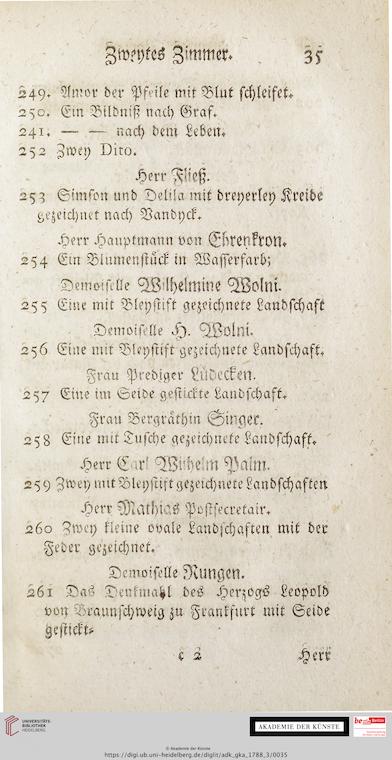 Zweytes Zimmer. 35
249. Amor der Pfeile mit Blut schleifet.
250. Ein Bildniß nach Graf.
241. — — nach dem Leben.
252 Zwey Dito.
Herr Fließ.
253 Simson und Delila mit dreyerley Kreide
gezeichnet nach Vandyck.
Herr Hauptmann von Ehrenkron.
254 Ein Blumenstück in Wasserfarb;
Demoiselle Wilhelmine Wolni.
255 Eine mit Bleystift gezeichnete Landschaft
Demoiselle H. Wolni.
256 Eine mit Bleystift gezeichnete Landschaft.
Frau Prediger Lüdecken.
257 Eine im Seide gestickte Landschaft.
Frau Bergräthin Singer.
258 Eine mit Tusche gezeichnete Landschaft.
Herr Carl Wilhelm Palm.
259 Zwey mit Bleystift gezeichnete Landschaften
Herr Mathias Postsecretair.
260 Zwey kleine ovale Landschaften mit der
Feder gezeichnet.
Demoiselle Rungen.
261 Das Denkmahl des Herzogs Leopold
von Braunschweig zu Frankfurt mit Seide
gestickt.
c 2 Herr
UNIVERSITÄTS-
BIBLIOTHEK
HEIDELBERG
AKADEMIE DER KÜNSTE
be Berlin
© Akademie der Künste
https://digi.ub.uni-heidelberg.de/diglit/adk_gka_1788_3/0035